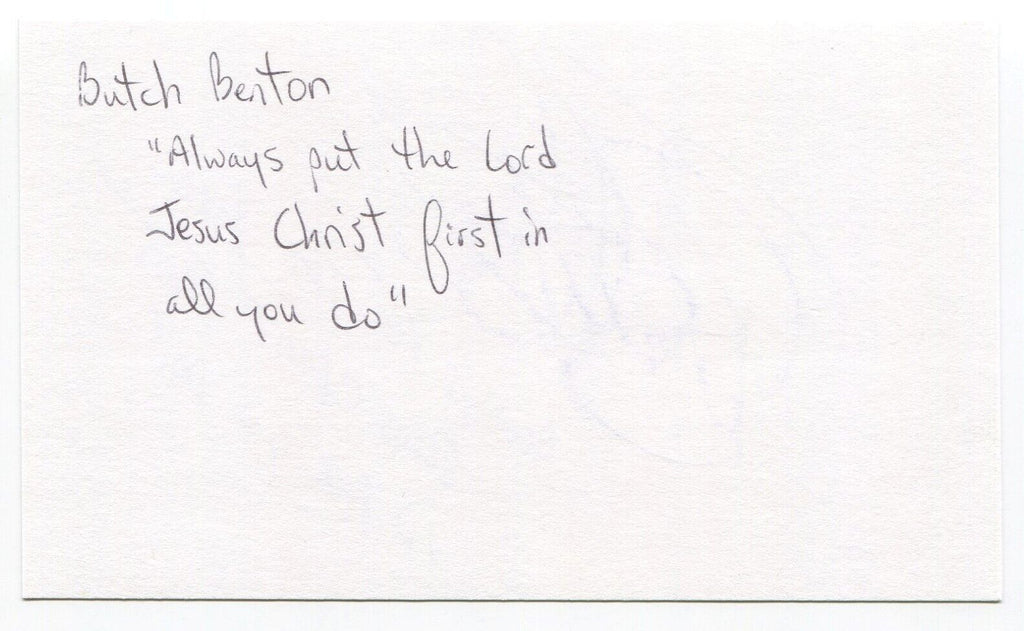 Butch Benton
"Always put the Lord
Jesus Christ first in
all you do"